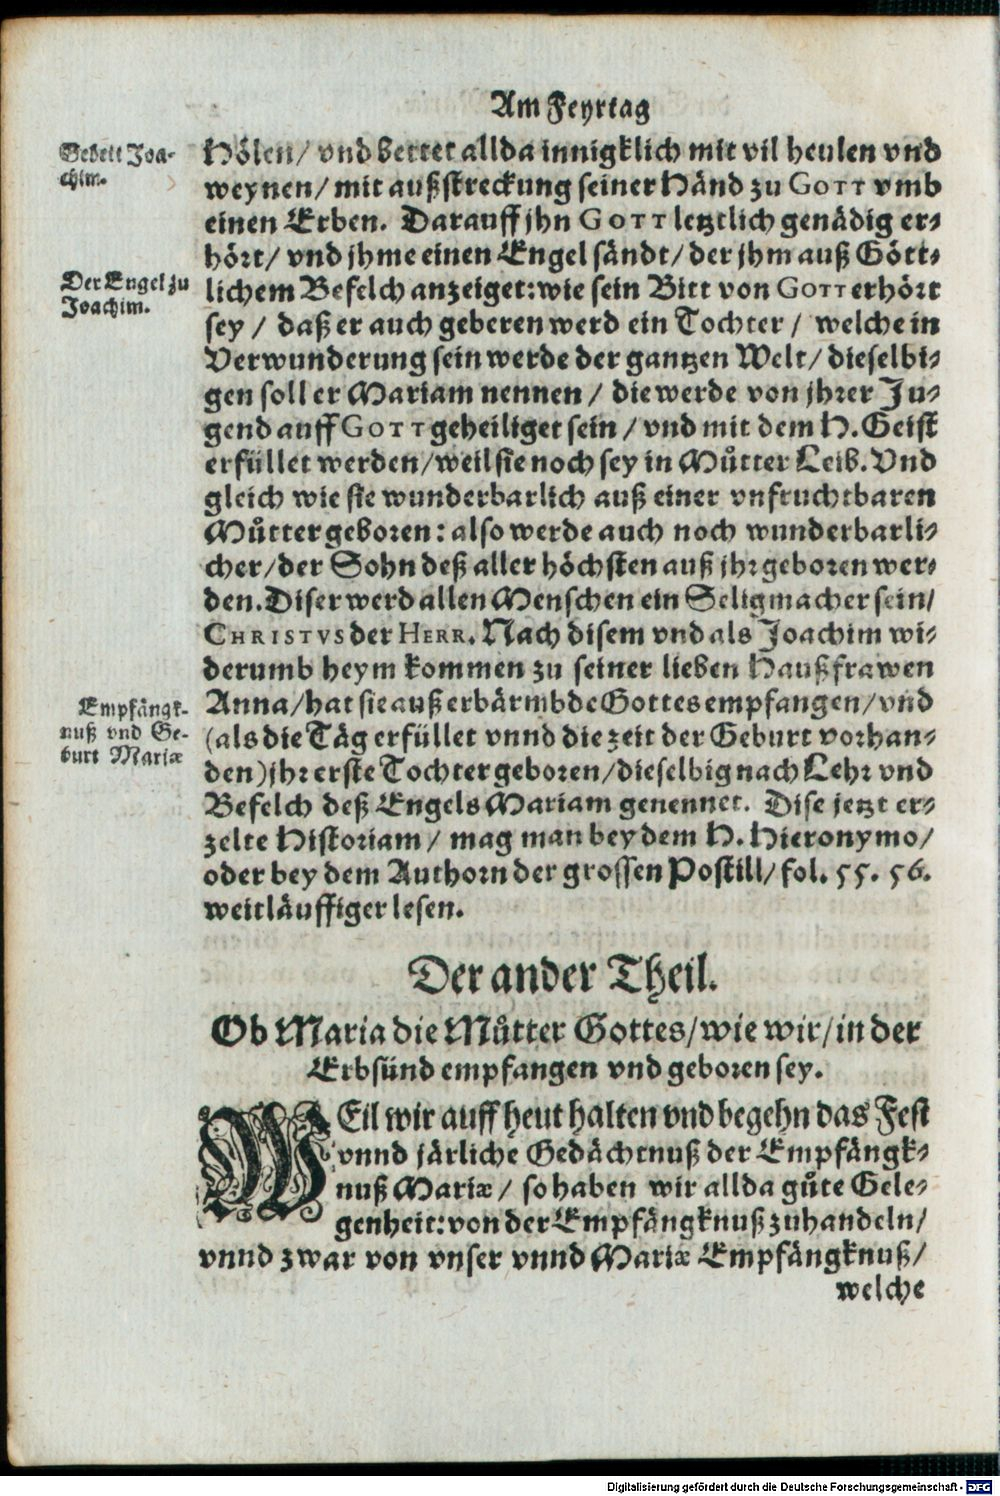 Am Feyrtag
Gebett Joa-
chim.
Hölen/ vnd bettet allda innigklich mit vil heulen vnd
weynen/ mit außstreckung seiner Händ zu GOTT vmb
einen Erben. Darauff jhn GOTT letztlich genädig er-
hört/ vnd jhme einen Engel sändt/ der jhm auß Gött-
Der Engel zu
Joachim.
lichem Befelch anzeiget: wie sein Bitt von GOTT erhört
sey / daß er auch geberen werd ein Tochter / welche in
Verwunderung sein werde der gantzen Welt/ dieselbi-
gen soll er Mariam nennen / die werde von jhrer Ju-
gend auff GOTT geheiliget sein / vnd mit dem H. Geist
erfüllet werden/ weil sie noch sey in Můtter Leib. Vnd
gleich wie sie wunderbarlich auß einer vnfruchtbaren
Můtter geboren: also werde auch noch wunderbarli-
cher/ der Sohn deß aller höchsten auß jhr geboren wer-
den. Diser werd allen Menschen ein Seligmacher sein/
CHRISTVS der HERR. Nach disem vnd als Joachim wi-
derumb heym kommen zu seiner lieben Haußfrawen
Empfängk-
nuß vnd Ge-
burt Mariæ
Anna/ hat sie auß erbärmbde Gottes empfangen/ vnd
(als die Täg erfüllet vnnd die zeit der Geburt vorhan-
den) jhr erste Tochter geboren/ dieselbig nach Lehr vnd
Befelch deß Engels Mariam genennet. Dise jetzt er-
zelte Historiam / mag man bey dem H. Hieronymo/
oder bey dem Authorn der grossen Postill/ fol. 55. 56.
weitläuffiger lesen.
Der ander Theil.
Ob Maria die Můtter Gottes/ wie wir/ in der
Erbsünd empfangen vnd geboren sey.
WEil wir auff heut halten vnd begehn das Fest
vnnd järliche Gedächtnuß der Empfängk-
nuß Mariæ / so haben wir allda gůte Gele-
genheit: von der Empfängknuß zuhandeln/
vnnd zwar von vnser vnnd Mariæ Empfängknuß/
welche
Digitalisierung gefördert durch die Deutsche Forschungsgemeinschaft - DFG